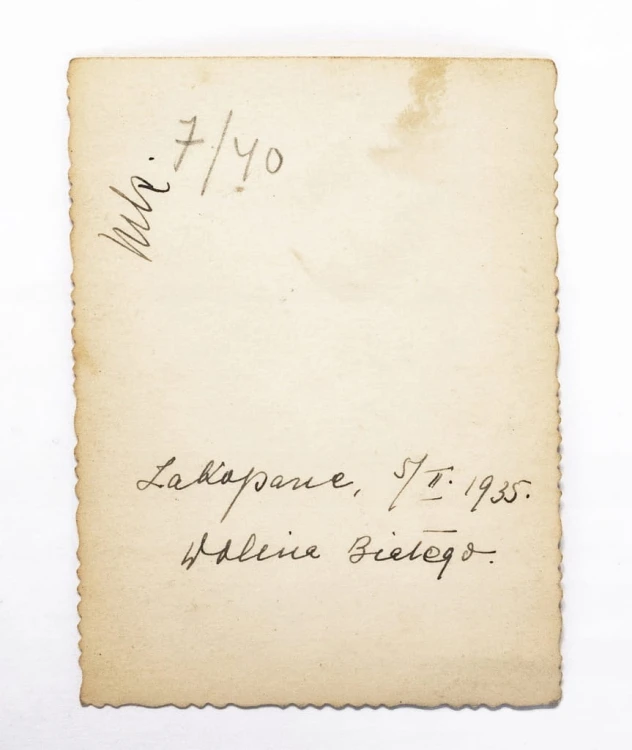 7/40
Zakopane, 5/II. 1935.
Dolina Białego.